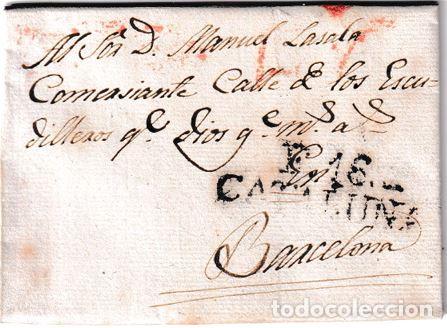 Al Sor. D. Manuel Lasala
Comersiante Calle de los Escu-
dilleros qe. Dios ge. ms. as.
En
16.
CATALUÑA
Barcelona
todocoleccion